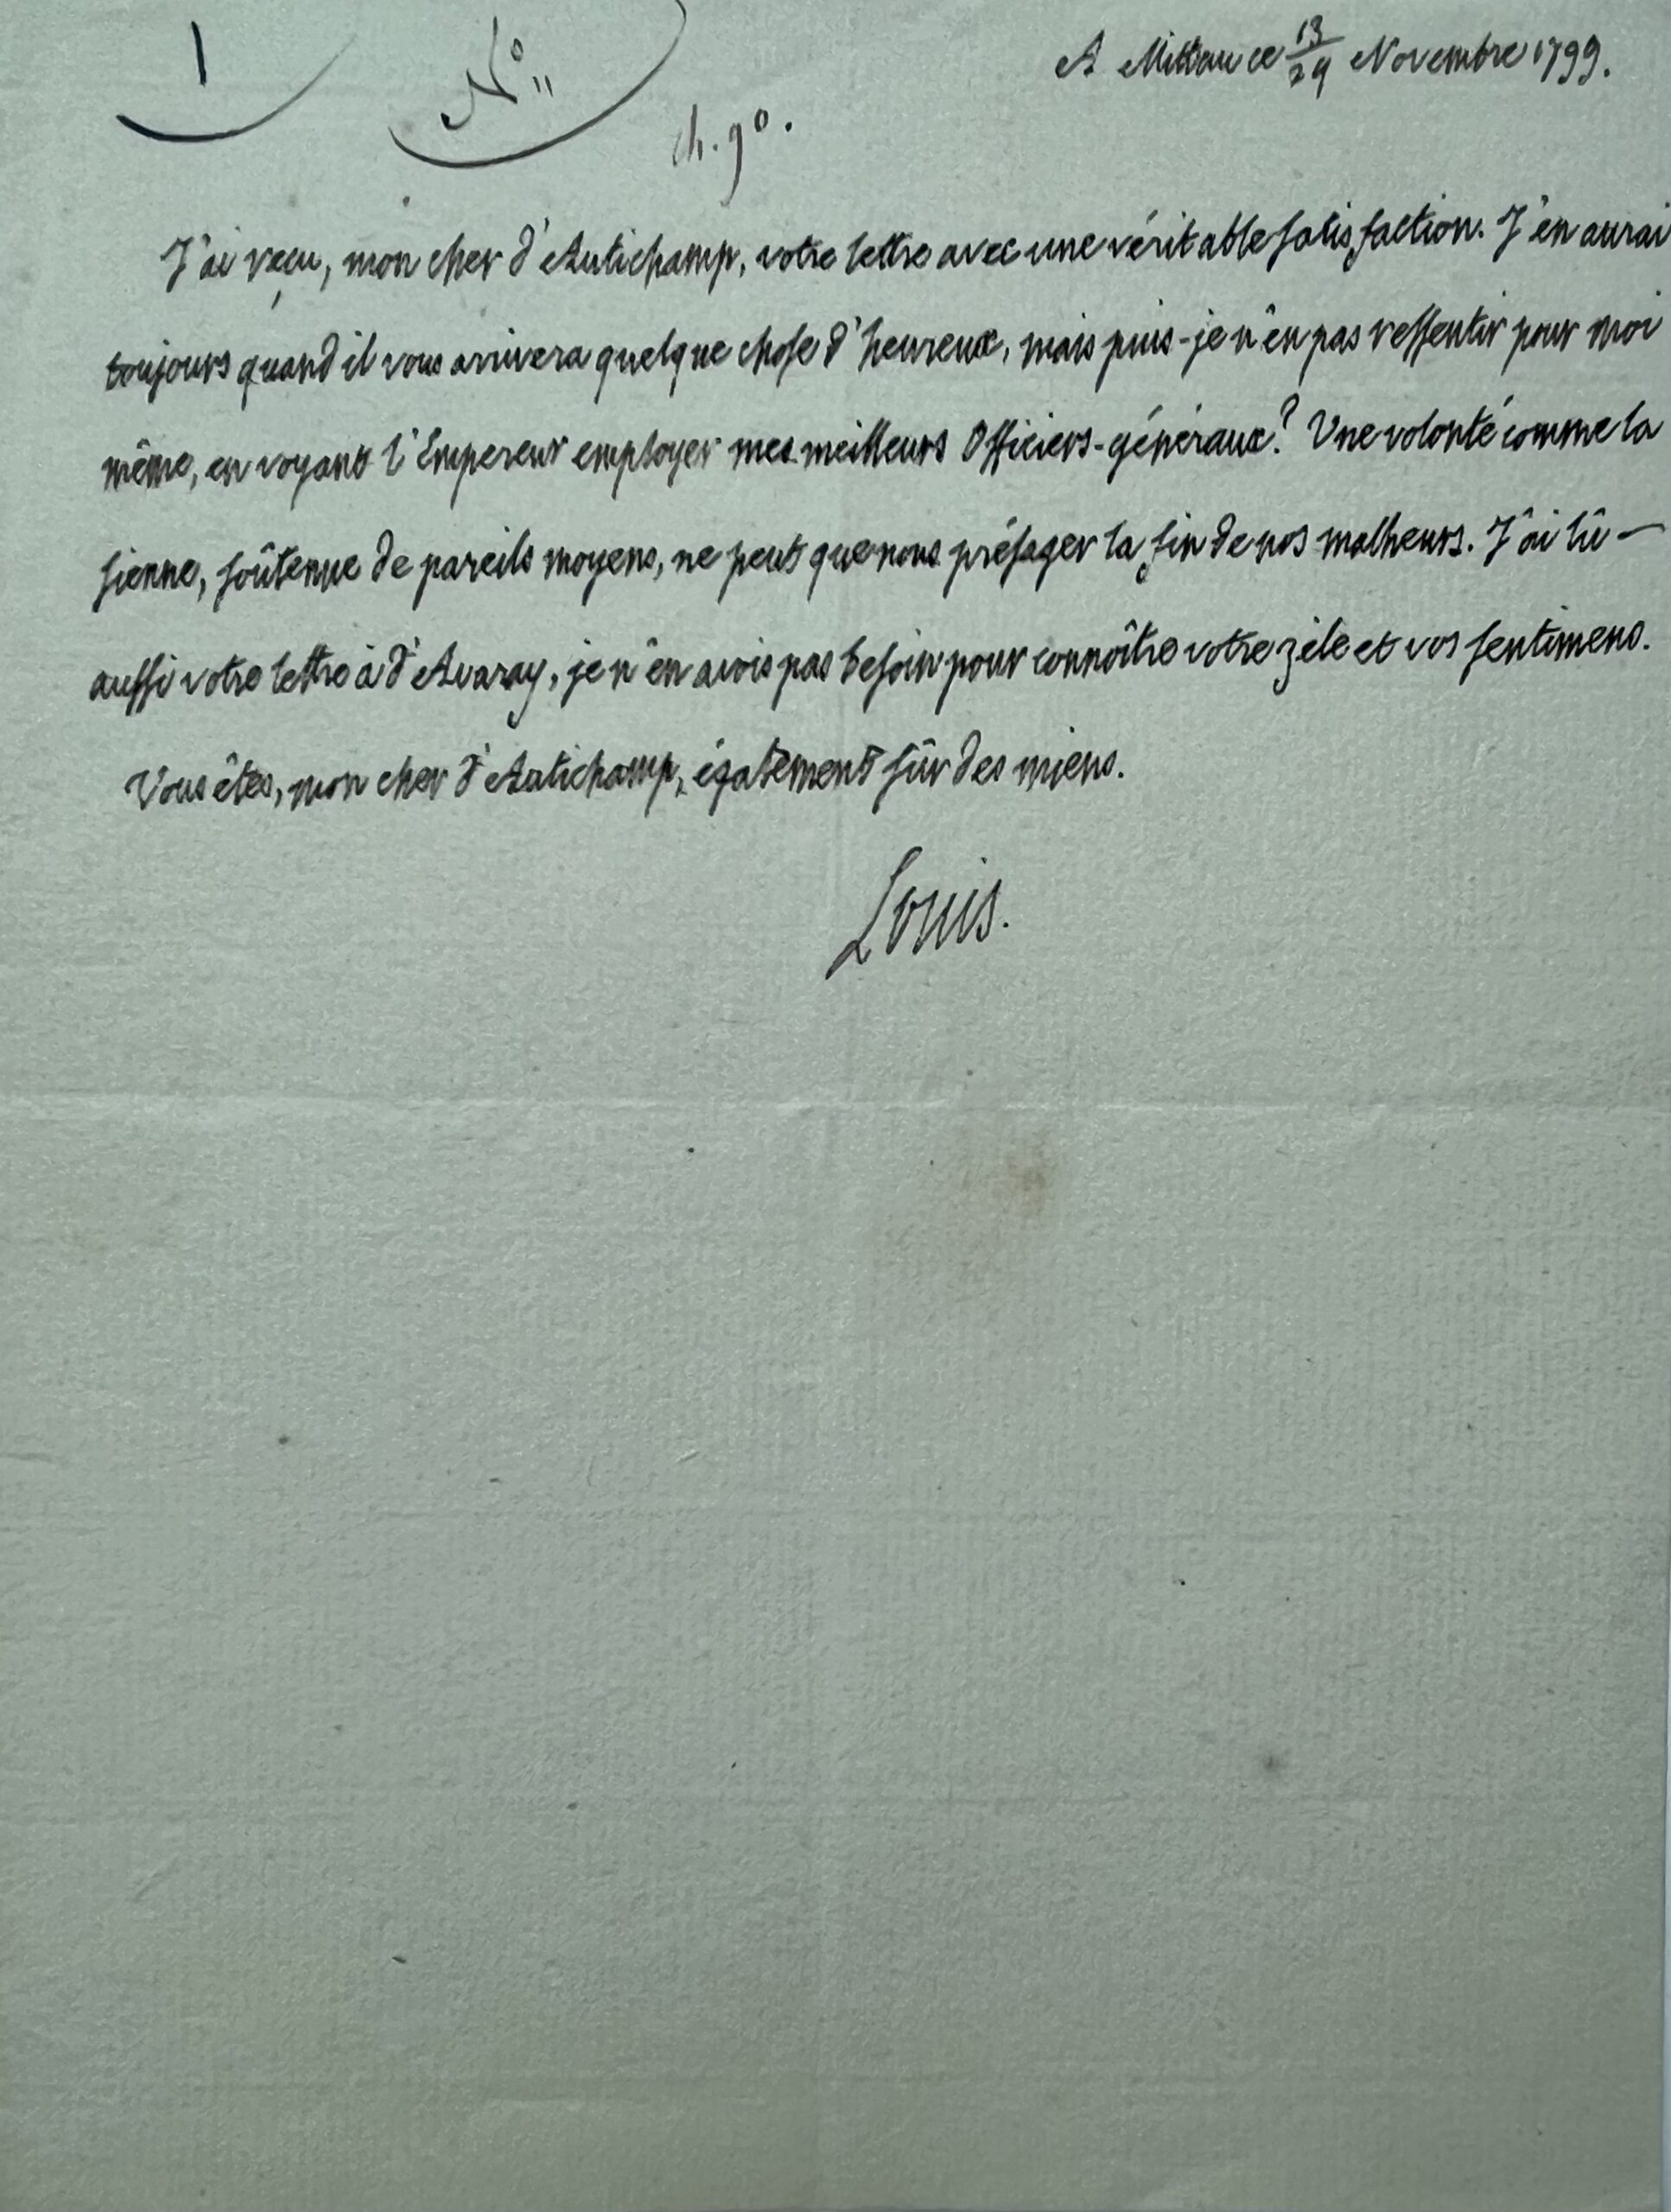 1
N° 11
A Mittau ce 13/24 Novembre 1799.
J'ai reçu, mon cher d'Autichamp, votre lettre avec une véritable satisfaction. J'en aurai
toujours quand il vous arrivera quelque chose d'heureux, mais puis-je n'en pas ressentir pour moi
même, en voyant l'Empereur employer mes meilleurs Officiers-généraux? Une volonté comme la
sienne, soûtenue de pareils moyens, ne peut que nous présager la fin de nos malheurs. J'ai lû —
aussi votre lettre à d'Avaray, je n'en avois pas besoin pour connoître votre zèle et vos sentimens.
Vous êtes, mon cher d'Autichamp, également sûr des miens.
Louis.